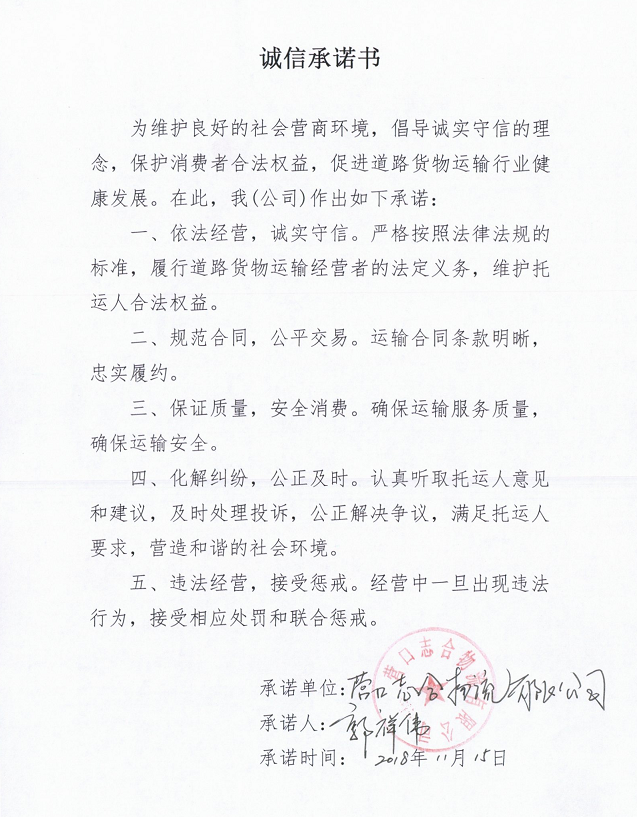 诚信承诺书
为维护良好的社会营商环境，倡导诚实守信的理
念，保护消费者合法权益，促进道路货物运输行业健
康发展。在此，我(公司)作出如下承诺：
一、依法经营，诚实守信。严格按照法律法规的
标准，履行道路货物运输经营者的法定义务，维护托
运人合法权益。
二、规范合同，公平交易。运输合同条款明晰，
忠实履约。
三、保证质量，安全消费。确保运输服务质量，
确保运输安全。
四、化解纠纷，公正及时。认真听取托运人意见
和建议，及时处理投诉，公正解决争议，满足托运人
要求，营造和谐的社会环境。
五、违法经营，接受惩戒。经营中一旦出现违法
行为，接受相应处罚和联合惩戒。
营口志合物流有限公司
承诺单位：营口志合物流有限公司
承诺人：郭祥伟
承诺时间： 2018年11月15日